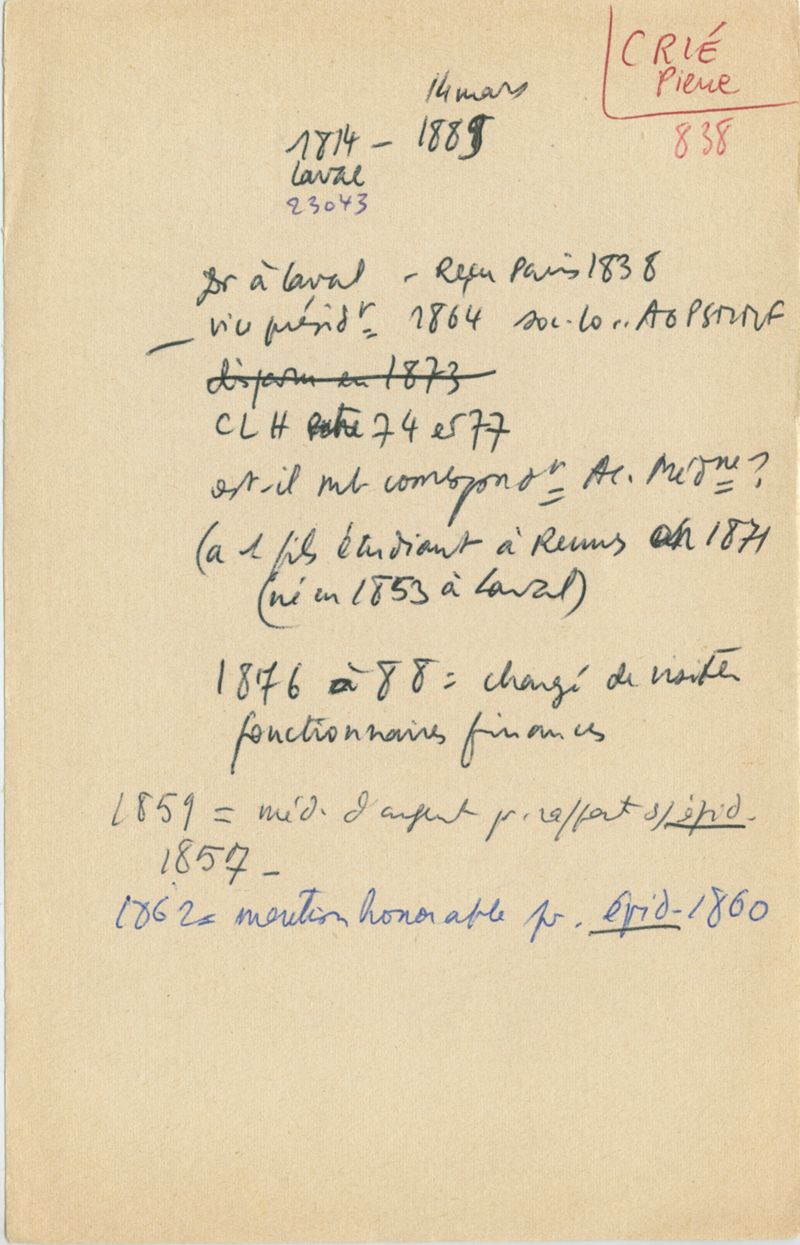 CRIÉ
Pierre
838
14 mars
1814 – 1889
Laval
23043
Dr à Laval – Reçu Paris 1838
vice présidt 1864 soc. lo..
disparu en 1873
CLH entre 74 et 77
est-il mb correspondt Ac. Médne ?
(a 1 fils étudiant à Rennes en 1871
(né en 1853 à Laval)
1876 à 88 = chargé de visiter
fonctionnaires finances
1859 = méd. d'argent pr. rapport s/ épid.
1857 –
1862 = mention honorable pr. épid. 1860